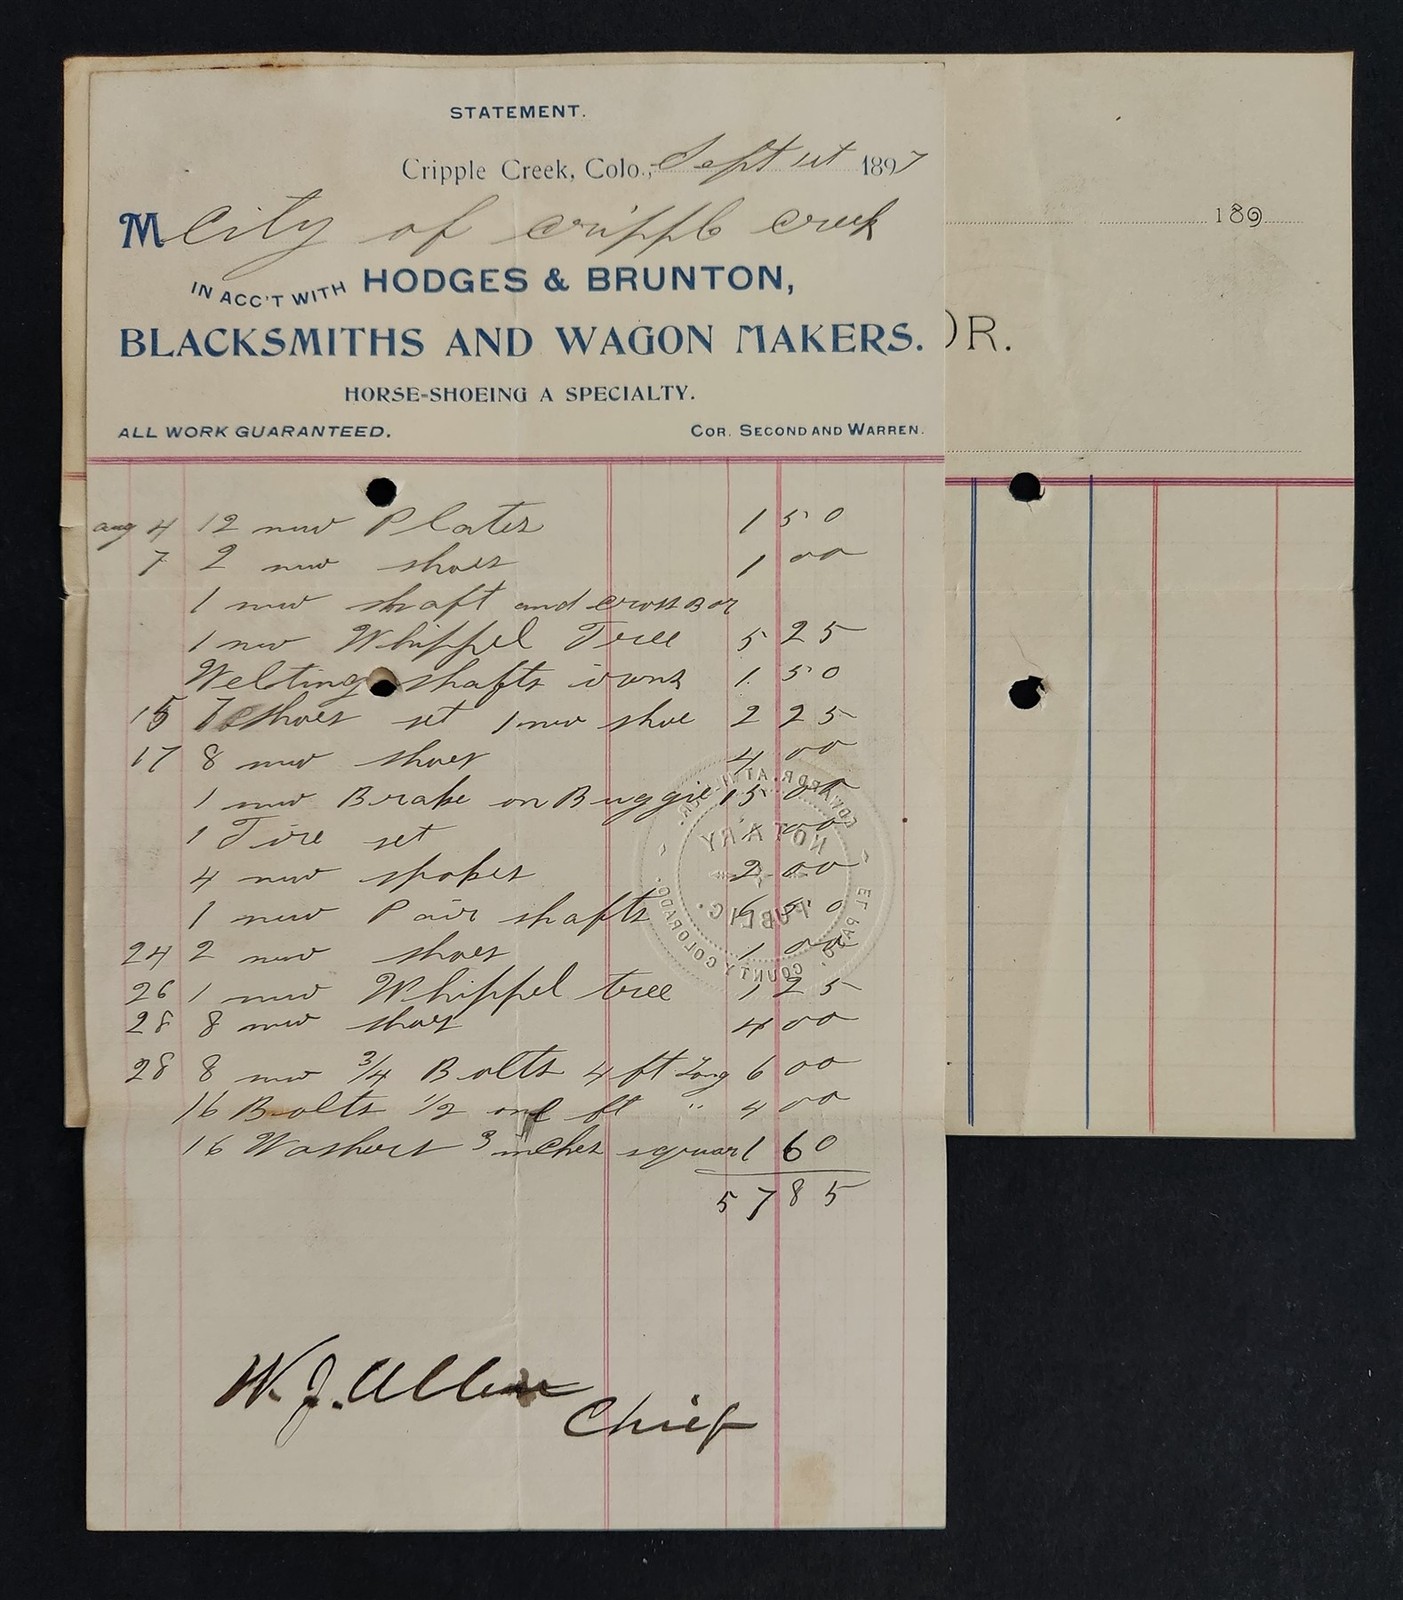 STATEMENT.
Cripple Creek, Colo., Sept 1st 1897
M City of cripple creek
IN ACC'T WITH HODGES & BRUNTON,
BLACKSMITHS AND WAGON MAKERS.
HORSE-SHOEING A SPECIALTY.
ALL WORK GUARANTEED. COR. SECOND AND WARREN.
189
OR.
aug 4 12 new Plates 1 50
7 2 new shoes 1 00
1 new shaft and cross Bar
1 new Whippel Tree 5 25
Welting shafts irons 1 50
15 7 shoes set 1 new shoe 2 25
17 8 new shoes 4 00
1 new Brake on Buggie 15 00
1 Tire set 00
4 new spokes 2 00
1 new Pair shafts 6 50
24 2 new shoes 1 00
26 1 new Whippel tree 1 25
28 8 new shoes 4 00
28 8 new 3/4 Bolts 4 ft Long 6 00
16 Bolts 1/2 one ft " 4 00
16 Washers 3 inches squar 1 60
57 85
W. J. Allen
Chief
NOTARY
PUBLIC.
EL PASO COUNTY COLORADO.